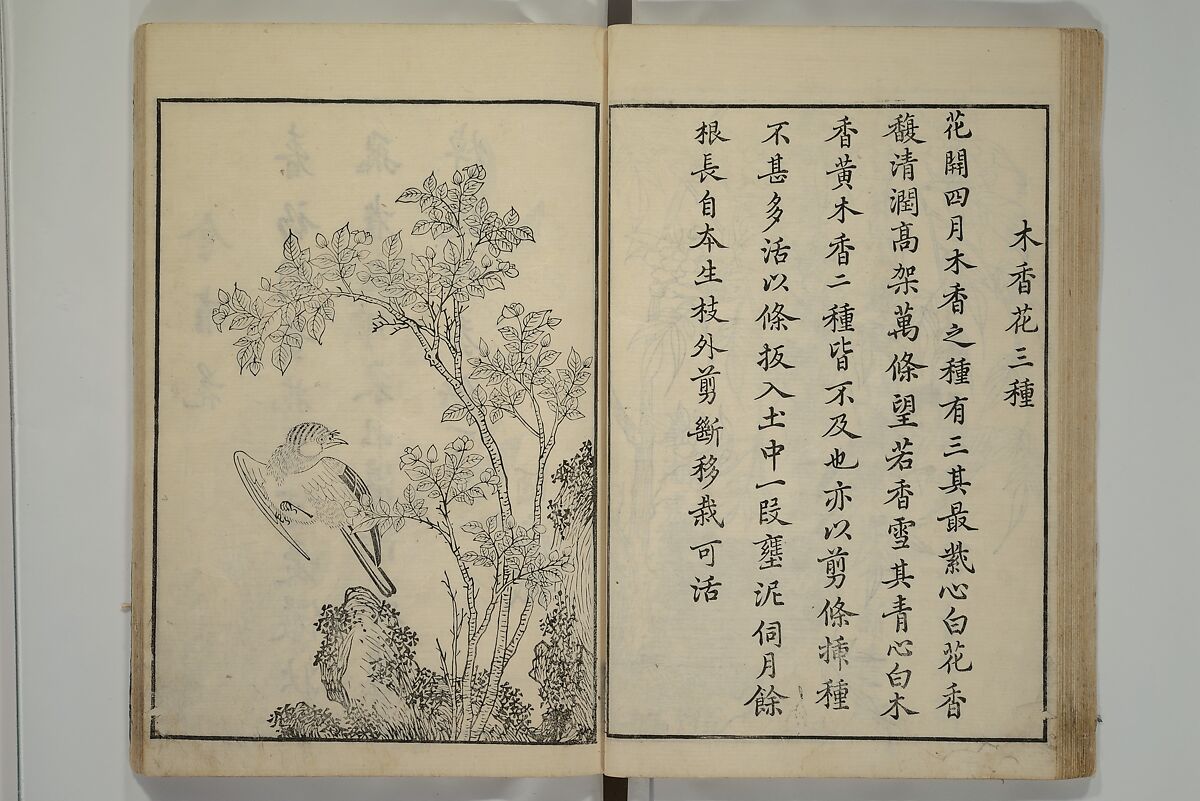 木香花三種
花開四月木香之種有三其最紫心白花香
馥清潤高架萬條望若香雪其青心白木
香黃木香二種皆不及也亦以剪條揷種
不甚多活以條扳入土中一段壅泥伺月餘
根長自本生枝外剪斷移栽可活